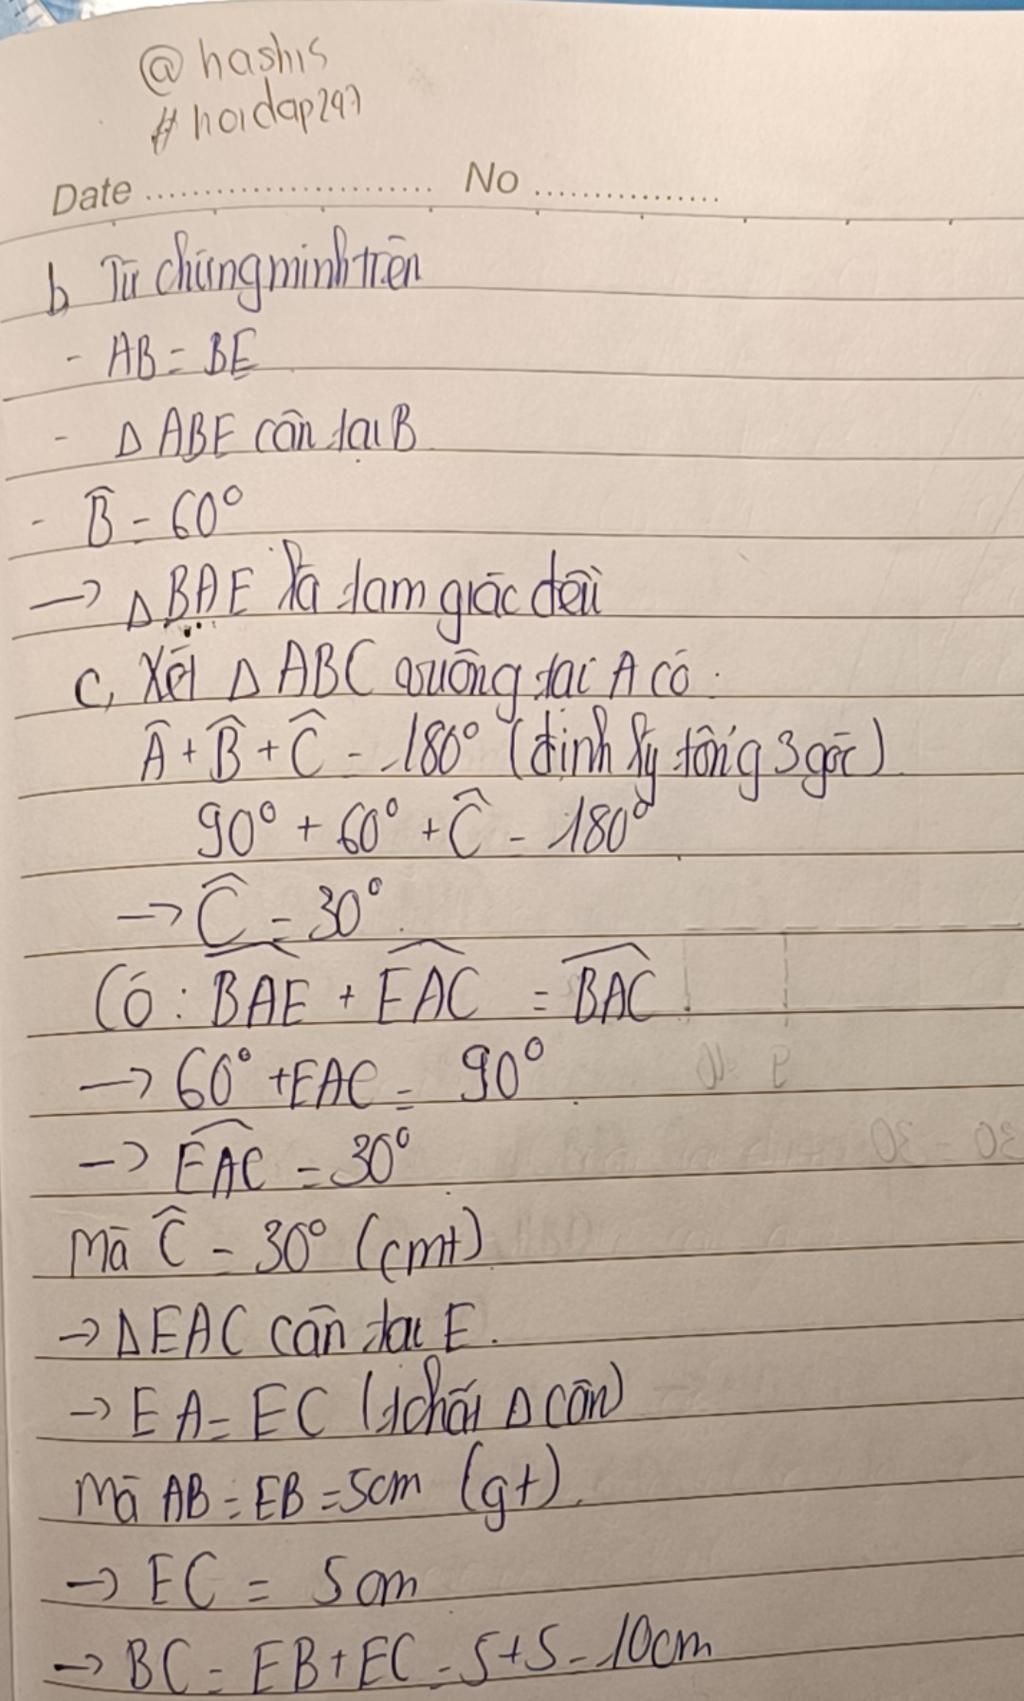 @hashis
#hoidap247
Date ........................ No ................
b, Từ chứng minh trên
- AB = BE
- Δ ABE cân tại B
- B̂ = 60°
→ Δ BAE là tam giác đều
c, Xét Δ ABC vuông tại A có :
Â + B̂ + Ĉ = 180° (định lý tổng 3 góc)
90° + 60° + Ĉ = 180°
→ Ĉ = 30°
Có : BAE + EAC = BAC
→ 60° + EAC = 90°
→ EAC = 30°
Mà Ĉ = 30° (cmt)
→ Δ EAC cân tại E.
→ EA = EC (t/chất Δ cân)
Mà AB = EB = 5cm (gt)
→ EC = 5cm
→ BC = EB + EC = 5 + 5 = 10cm